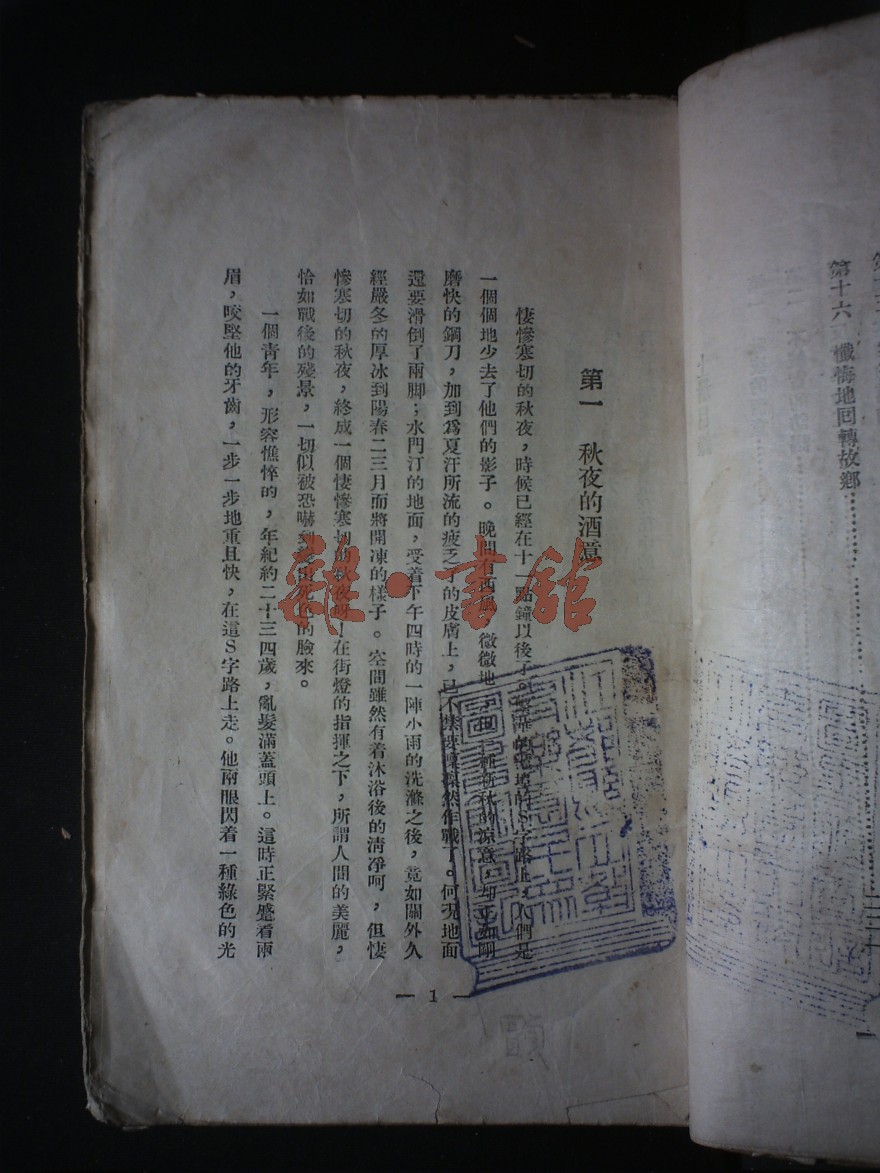 第一　秋夜的酒意
悽慘寒切的秋夜，時候已經在十一點鐘以後了。的S字路上，人們是
一個個地少去了他們的影子。晚間有西風，微微地，但一種新秋的涼意，却正如剛
磨快的鋼刀，加到爲夏汗所流的疲乏了的皮膚上，已不禁要凜凜然作戰了。何况地面
還要滑倒了兩脚；水門汀的地面，受着下午四時的一陣小雨的洗滌之後，竟如關外久
經嚴冬的厚冰到陽春二三月而將開凍的樣子。空間雖然有着沐浴後的清凈呵，但悽
慘寒切的秋夜，終成一個悽慘寒切的秋夜呀！在街燈的指揮之下，所謂人間的美麗，
恰如戰後的殘景，一切似被恐嚇到變出死色的臉來。
一個青年，形容憔悴的，年紀約二十三四歲，亂髮滿蓋頭上。這時正緊蹙着兩
眉，咬堅他的牙齒，一步一步地重且快，在這S字路上走。他兩眼閃着一種綠色的光
— 1 —
第十六　懺悔地回轉故鄉
雜·書舘